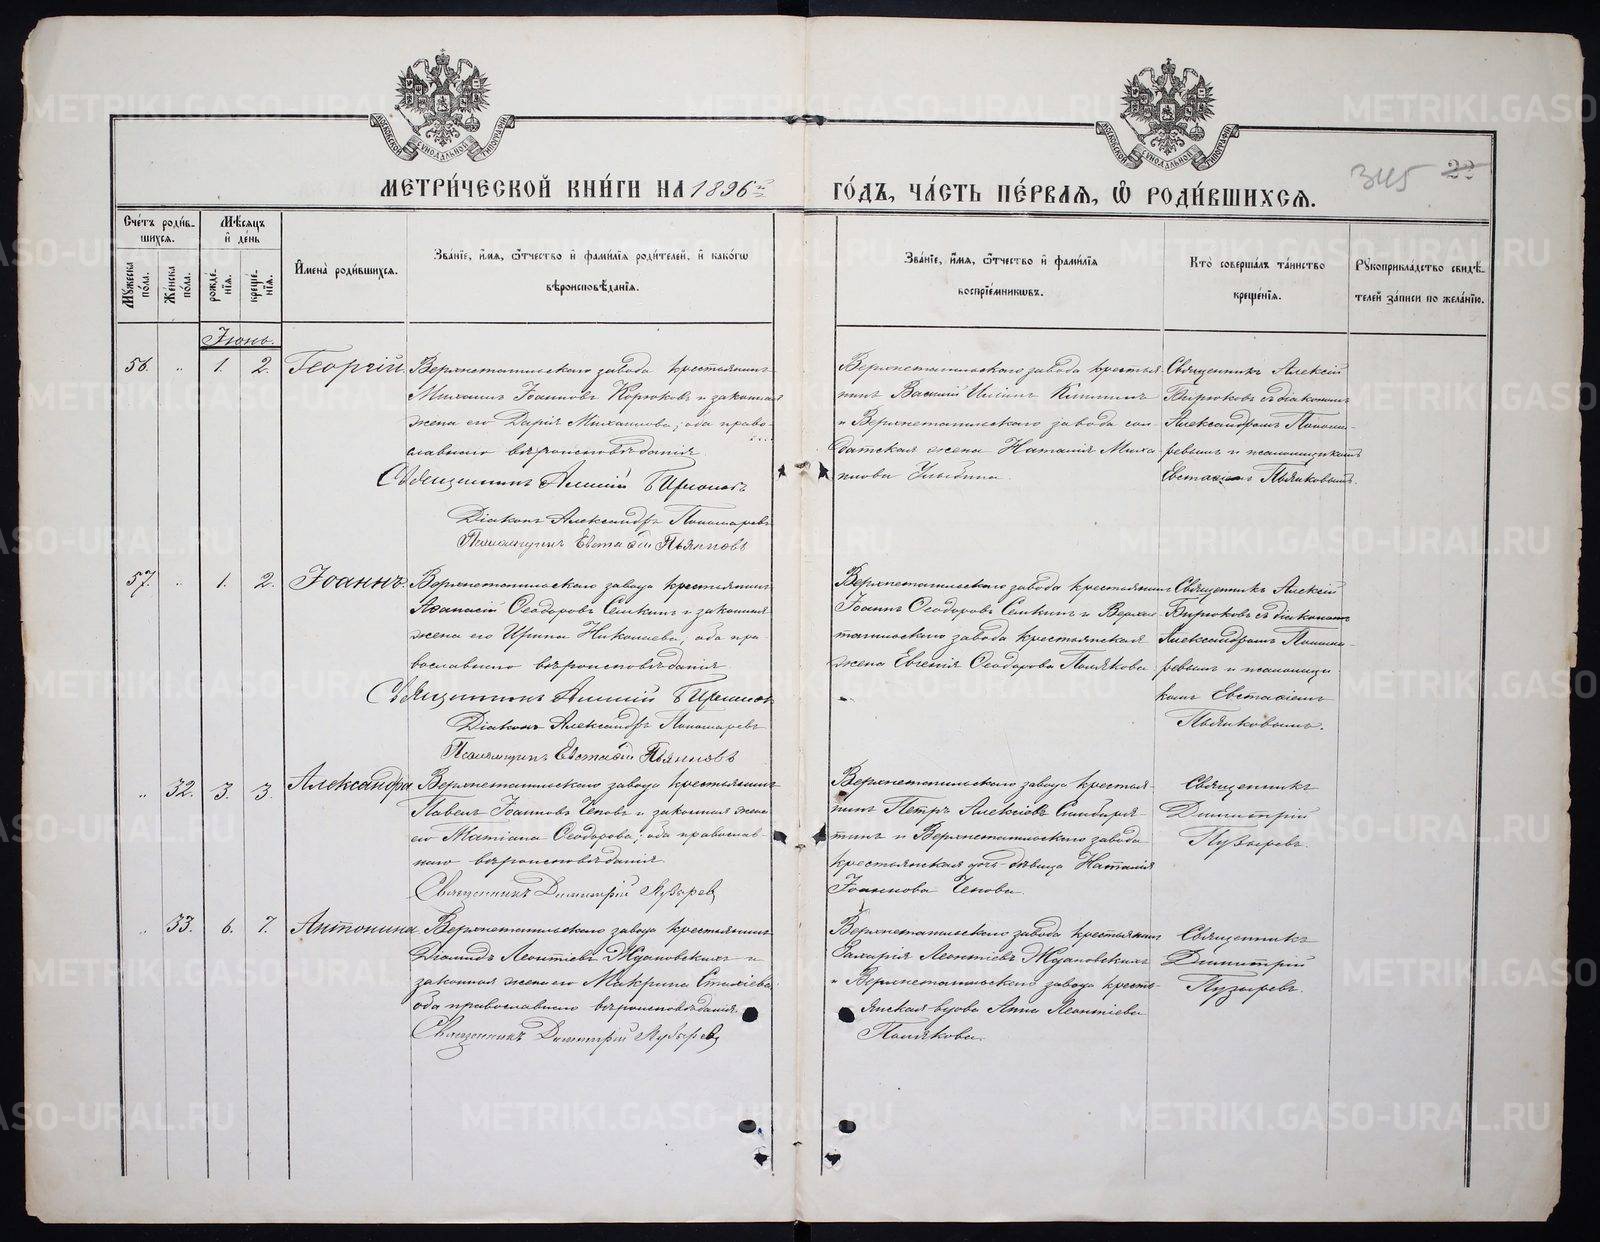 МЕТРИ́ЧЕСКОЙ КНИ́ГИ НА 1896й ГО́ДЪ, ЧА́СТЬ ПЕ́РВАЯ, Ѽ РОДИ́ВШИХСЯ.
345 22
МОСКОВСКОЙ СѴНОДАЛЬНОЙ ТИПОГРАФІИ
МОСКОВСКОЙ СѴНОДАЛЬНОЙ ТИПОГРАФІИ
Сче́тъ роди́вшихся.
Му́жеска по́ла.
Же́нска по́ла.
Мѣ́сяцъ и́ де́нь
рожде́нїя.
креще́нїя.
И҆мена̀ роди́вшихся.
Зва́нїе, и҆́мя, ѻ҆́тчество и҆ фами́лїя роди́телей, и҆ како́гѡ
вѣроисповѣ́данїя.
Зва́нїе, и҆́мя, ѻ҆́тчество и҆ фами́лїя
воспрїе́мникѡвъ.
Кто̀ соверша́лъ та́инство
креще́нїя.
Рꙋкоприкла́дство свидѣ́-
телей за́писи по жела́нїю.
Іюнь.
56. " 1. 2. Георгій.
Верхнетагильскаго завода крестьянинъ
Михаилъ Іоанновъ Корюковъ и законная
жена его Дарія Михаилова; оба право-
славнаго вѣроисповѣданія
Священникъ Алексій Бирюковъ
Діаконъ Александръ Пономаревъ
Псаломщикъ Евстафій Пьянковъ
Верхнетагильскаго завода крестья-
нинъ Василій
и Верхнетагильскаго завода сол-
датская жена Наталія Миха-
илова
Священникъ Алексій
Бирюковъ съ діакономъ
Александромъ Понома-
ревымъ и псаломщикомъ
Евстафіемъ Пьянковымъ.
57. " 1. 2. Іоаннъ.
Верхнетагильскаго завода крестьянинъ
Аѳанасій Ѳеодоровъ Селкинъ и законная
жена его Ирина Николаева, оба пра
вославнаго вѣроисповѣданія
Священникъ Алексій Бирюковъ
Діаконъ Александръ Пономаревъ
Псаломщикъ Евстафій Пьянковъ
Верхнетагильскаго завода крестьянинъ
Іоаннъ Ѳеодоровъ Селкинъ и Верхне
тагильскаго завода крестьянская
жена Евгенія Ѳеодорова Полякова.
Священникъ Алексій
Бирюковъ съ діакономъ
Александромъ Понома-
ревымъ и псаломщи
комъ Евстафіемъ
Пьянковымъ.
" 32. 3. 3. Александра
Верхнетагильскаго завода крестьянинъ
Павелъ Іоанновъ Чековъ и законная жена
его Матіана Ѳеодорова; оба православ-
наго вѣроисповѣданія
Священникъ Димитрій Пузырев
Верхнетагильскаго завода крестья-
нинъ Петръ Алексіевъ
и Верхнетагильскаго завода
крестьянская дочь дѣвица Наталія
Іоаннова Чекова.
Священникъ
Димитрій
Пузыревъ.
" 33. 6. 7. Антонина
Верхнетагильскаго завода крестьянинъ
Діомидъ Леонтіевъ Ждановскихъ и
законная жена его Макрина Стахіева
оба православнаго вѣроисповѣданія.
Священникъ Димитрій Пузырев
Верхнетагильскаго завода крестьянинъ
Захарія Леонтіевъ Ждановскихъ
и Верхнетагильскаго завода кресть-
янская вдова Анна Леонтіева
Полякова.
Священникъ
Димитрій
Пузыревъ.
METRIKI.GASO-URAL.RU